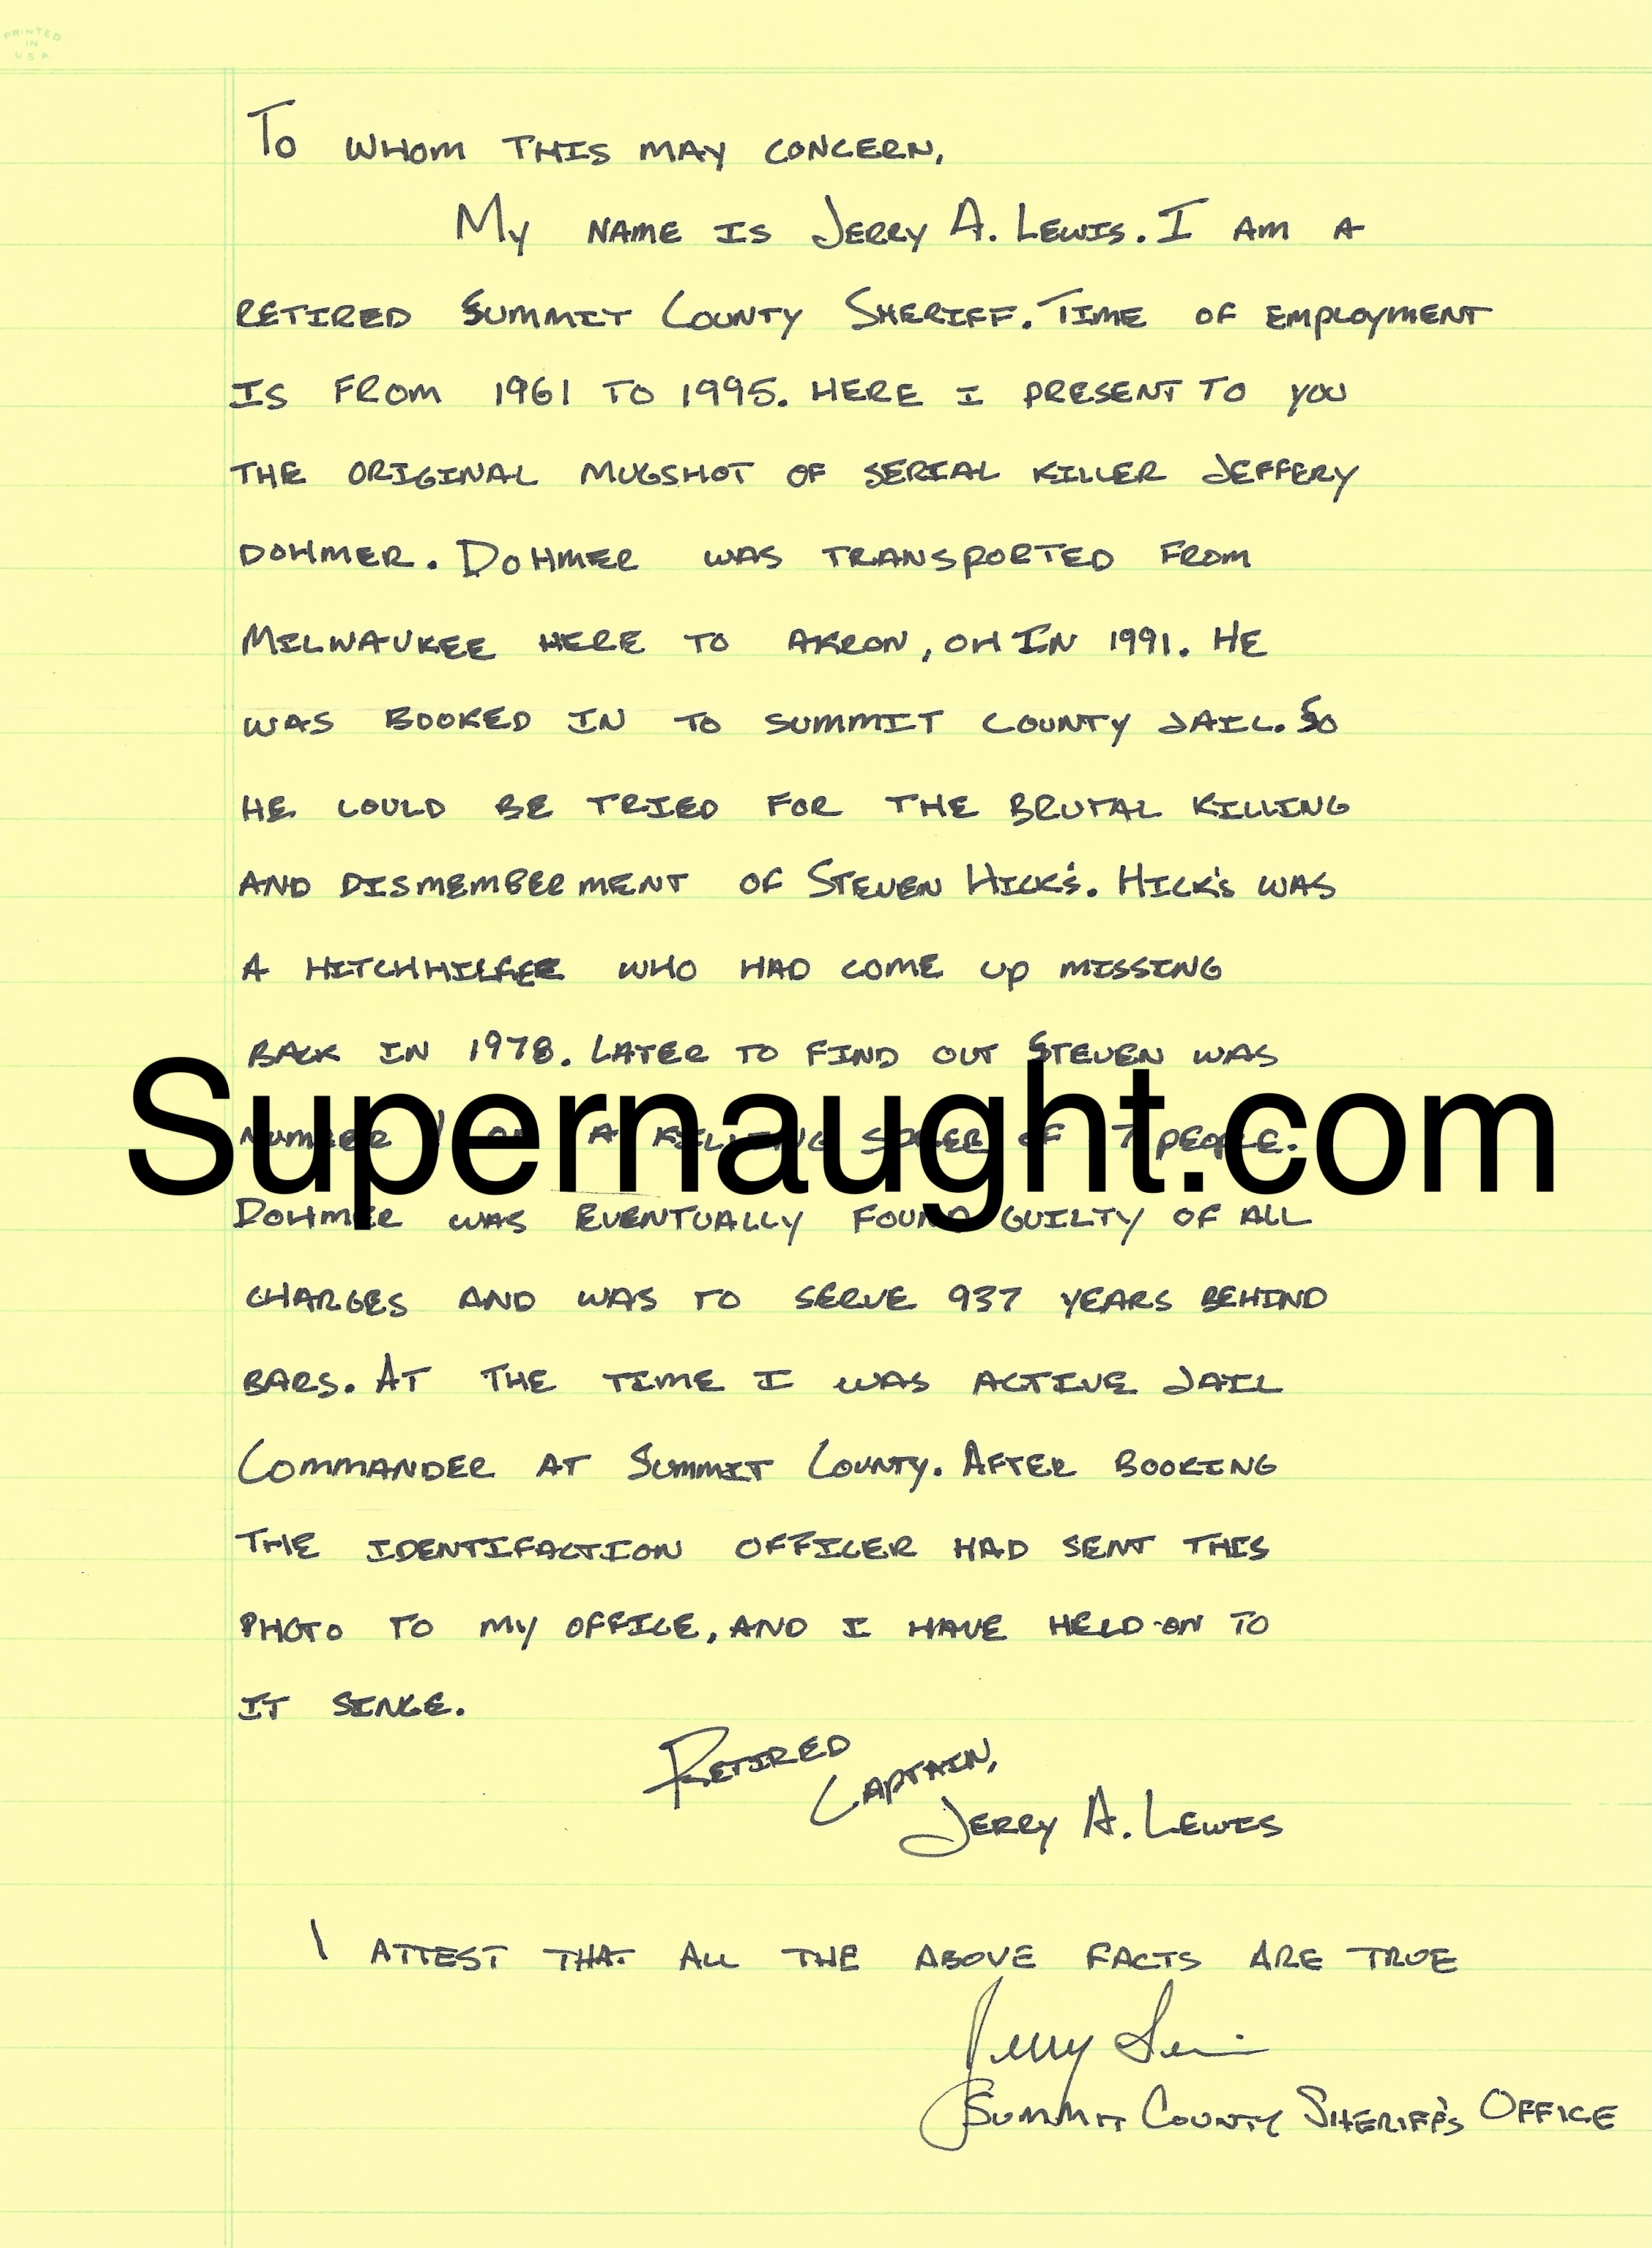 PRINTED
IN
U S A
To WHOM THIS MAY CONCERN,
My NAME IS JERRY A. LEWIS. I AM A
RETIRED SUMMIT COUNTY SHERIFF. TIME OF EMPLOYMENT
IS FROM 1961 TO 1995. HERE I PRESENT TO YOU
THE ORIGINAL MUGSHOT OF SERIAL KILLER JEFFERY
DOHMER. DOHMER WAS TRANSPORTED FROM
MILWAUKEE HERE TO AKRON, OH IN 1991. HE
WAS BOOKED IN TO SUMMIT COUNTY JAIL. SO
HE COULD BE TRIED FOR THE BRUTAL KILLING
AND DISMEMBERMENT OF STEVEN HICK'S. HICK'S WAS
A WHO HAD COME UP MISSING
BACK IN 1978. LATER TO FIND OUT STEVEN WAS
Supernaught.com
NUMBER 1 A KILLING OF PEOPLE.
DOHMER WAS EVENTUALLY FOUND GUILTY OF ALL
CHARGES AND WAS TO SERVE 937 YEARS BEHIND
BARS. AT THE TIME I WAS ACTIVE JAIL
COMMANDER AT SUMMIT COUNTY. AFTER BOOKING
THE IDENTIFACTION OFFICER HAD SENT THIS
PHOTO TO MY OFFICE, AND I HAVE HELD ON TO
IT SINCE.
RETIRED
CAPTAIN,
JERRY A. LEWIS
I ATTEST THAT ALL THE ABOVE FACTS ARE TRUE
Jerry Lewis
SUMMIT COUNTY SHERIFF'S OFFICE